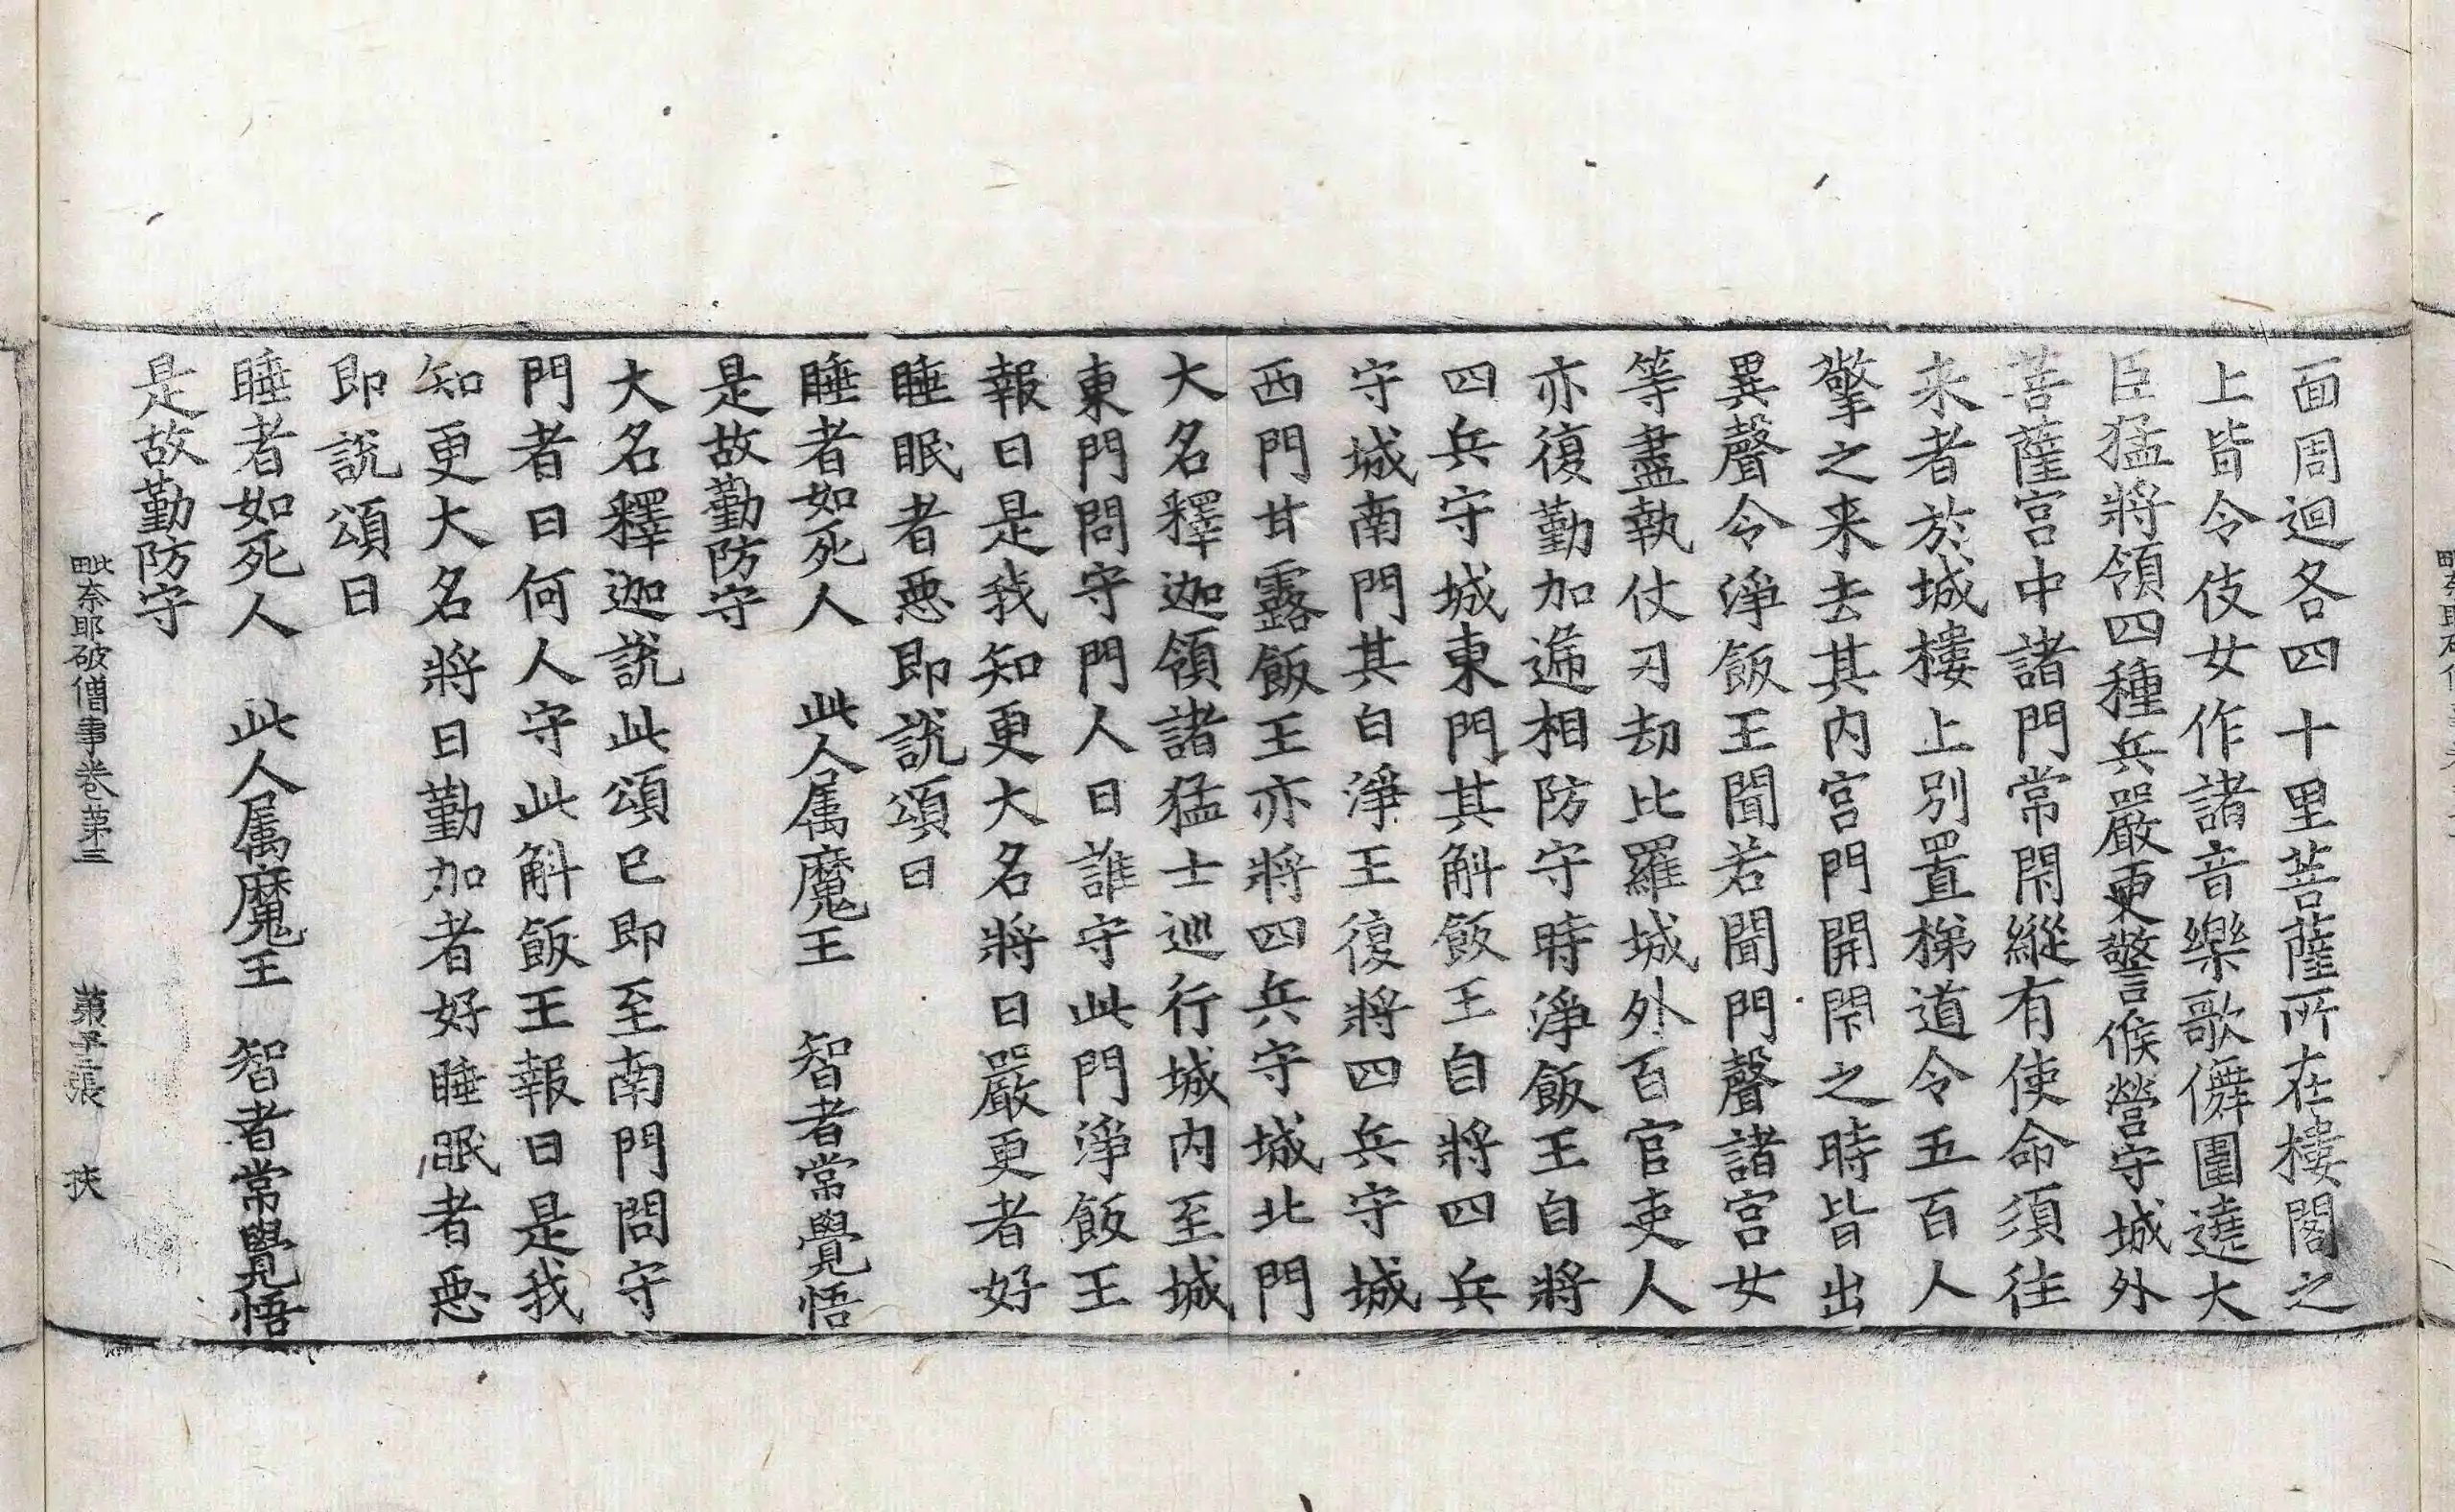 面周迴各四十里菩薩所在樓閣之
上皆令伎女作諸音樂歌儛圍遶大
臣猛將領四種兵嚴更警候營守城外
菩薩宮中諸門常閇縱有使命須往
来者於城樓上別置梯道令五百人
擎之来去其內宮門開閇之時皆出
異聲令淨飯王聞若聞門聲諸宮女
等盡執仗刃劫比羅城外百官吏人
亦復勤加遞相防守時淨飯王自將
四兵守城東門其斛飯王自將四兵
守城南門其白淨王復將四兵守城
西門甘露飯王亦將四兵守城北門
大名釋迦領諸猛士巡行城內至城
東門問守門人曰誰守此門淨飯王
報曰是我知更大名將曰嚴更者好
睡眠者惡即說頌曰
睡者如死人　此人属魔王　智者常覺悟
是故勤防守
大名釋迦說此頌已即至南門問守
門者曰何人守此斛飯王報曰是我
知更大名將曰勤加者好睡眠者惡
即說頌曰
睡者如死人　此人属魔王　智者常覺悟
是故勤防守
毗奈耶破僧事卷第三　第十二張　挾